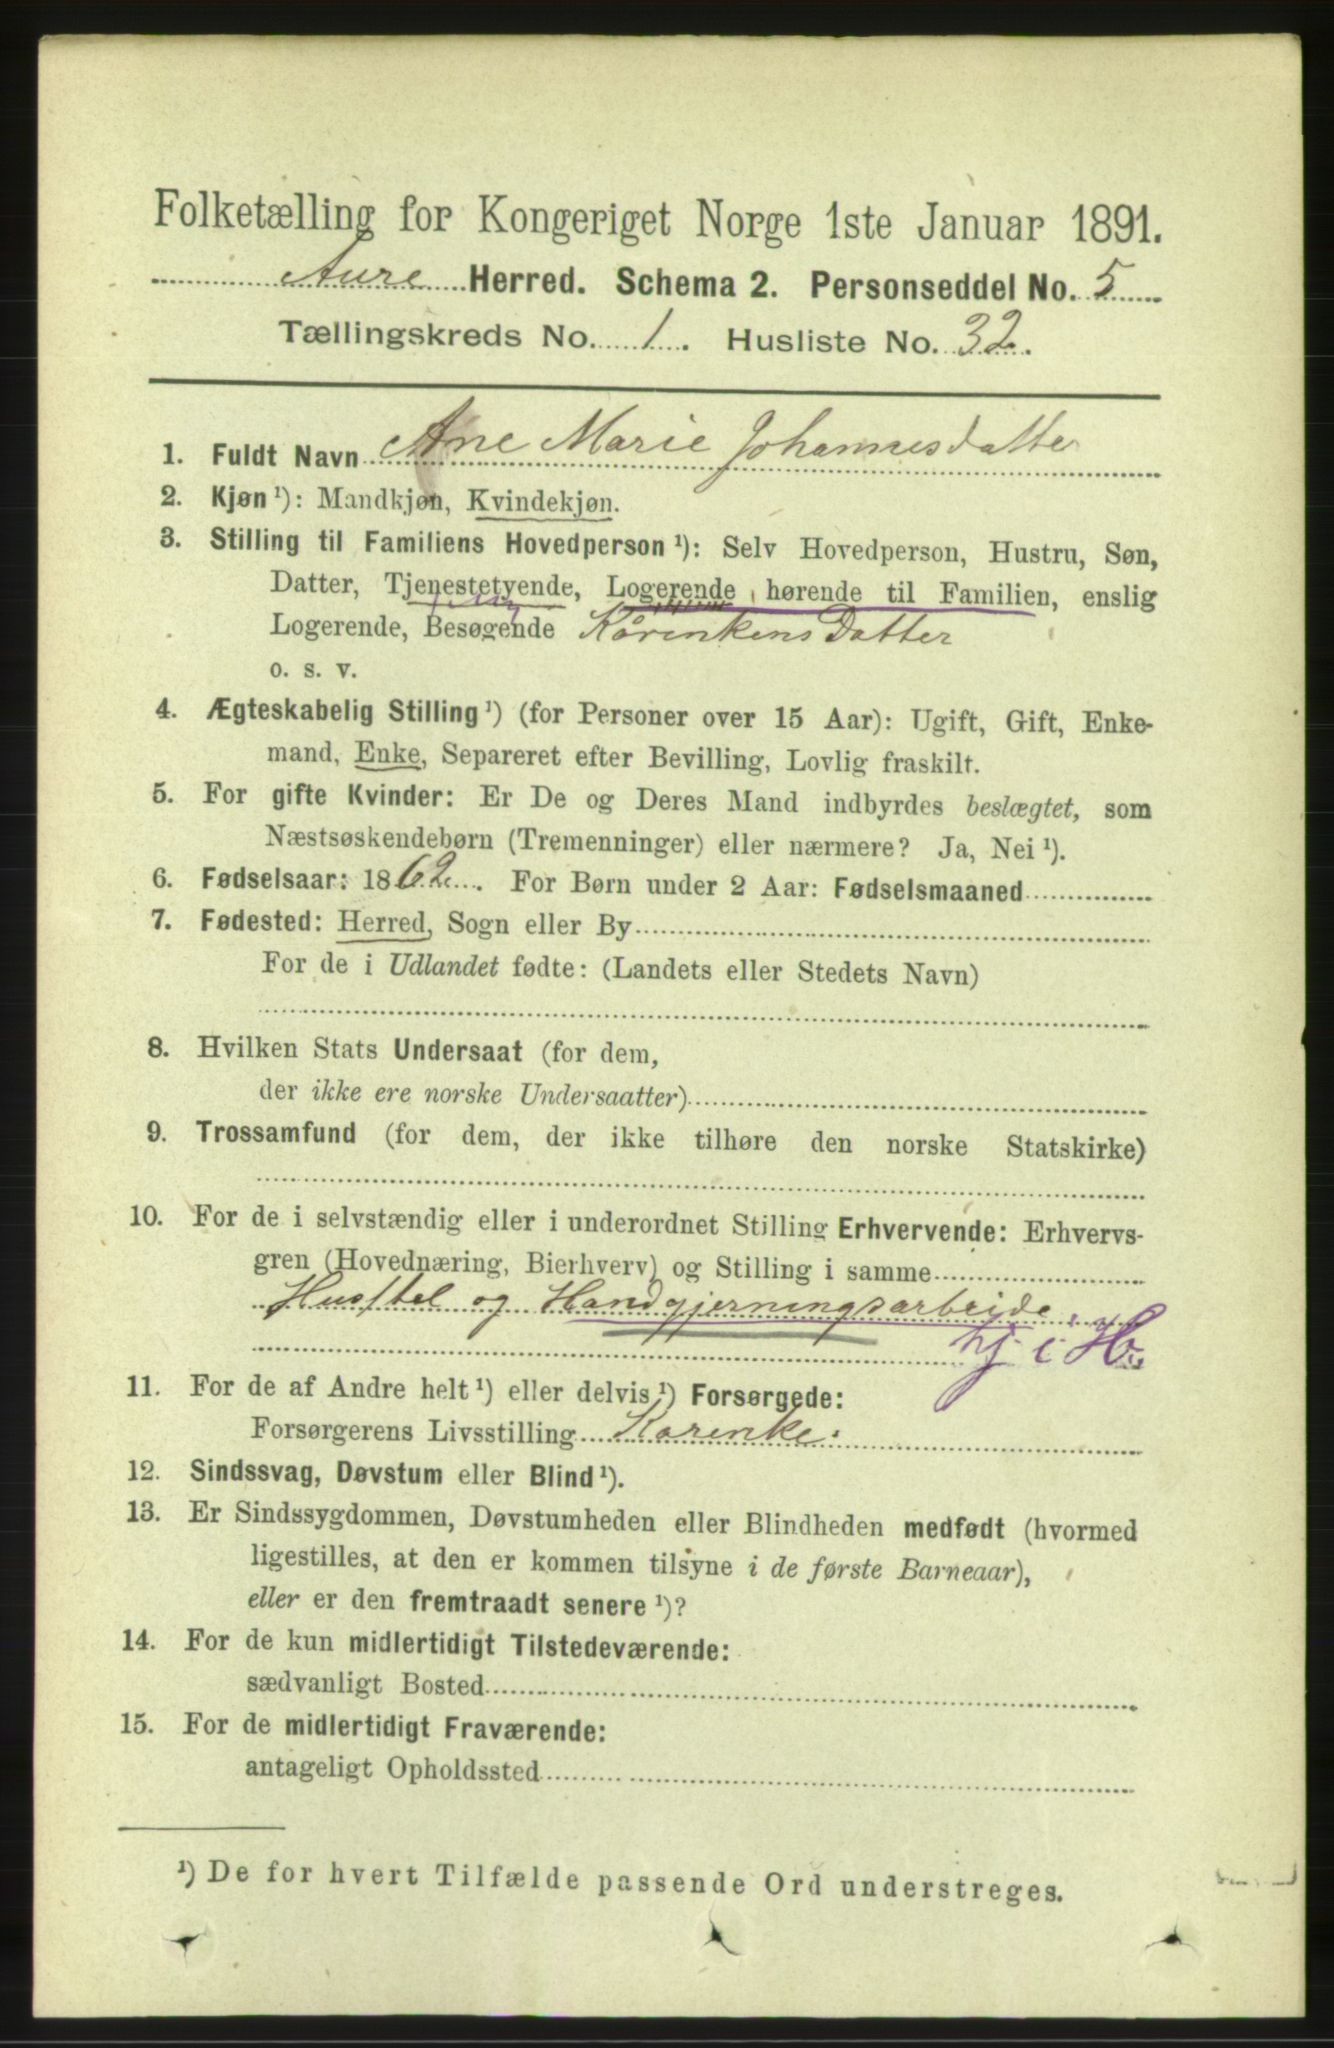 Folketælling for Kongeriget Norge 1ste Januar 1891.
Aure Herred. Schema 2. Personseddel No. 5
Tællingskreds No. 1. Husliste No. 32.
1. Fuldt Navn Ane Marie Johannesdatter
2. Kjøn ¹): Mandkjøn, Kvindekjøn.
3. Stilling til Familiens Hovedperson ¹): Selv Hovedperson, Hustru, Søn,
Datter, Tjenestetyende, Logerende, hørende til Familien, enslig
Logerende, Besøgende Kårenkens Datter
o. s. v.
4. Ægteskabelig Stilling ¹) (for Personer over 15 Aar): Ugift, Gift, Enke-
mand, Enke, Separeret efter Bevilling, Lovlig fraskilt.
5. For gifte Kvinder: Er De og Deres Mand indbyrdes beslægtet, som
Næstsøskendebørn (Tremenninger) eller nærmere? Ja, Nei ¹).
6. Fødselsaar: 1862. For Børn under 2 Aar: Fødselsmaaned
7. Fødested: Herred, Sogn eller By
For de i Udlandet fødte: (Landets eller Stedets Navn)
8. Hvilken Stats Undersaat (for dem,
der ikke ere norske Undersaatter)
9. Trossamfund (for dem, der ikke tilhøre den norske Statskirke)
10. For de i selvstændig eller i underordnet Stilling Erhvervende: Erhvervs-
gren (Hovednæring, Bierhverv) og Stilling i samme
Husstel og Handgjerningsarbeide.
tj i H.
11. For de af Andre helt ¹) eller delvis ¹) Forsørgede:
Forsørgerens Livsstilling Kårenke.
12. Sindssvag, Døvstum eller Blind ¹).
13. Er Sindssygdommen, Døvstumheden eller Blindheden medfødt (hvormed
ligestilles, at den er kommen tilsyne i de første Barneaar),
eller er den fremtraadt senere ¹)?
14. For de kun midlertidigt Tilstedeværende:
sædvanligt Bosted
15. For de midlertidigt Fraværende:
antageligt Opholdssted
¹) De for hvert Tilfælde passende Ord understreges.